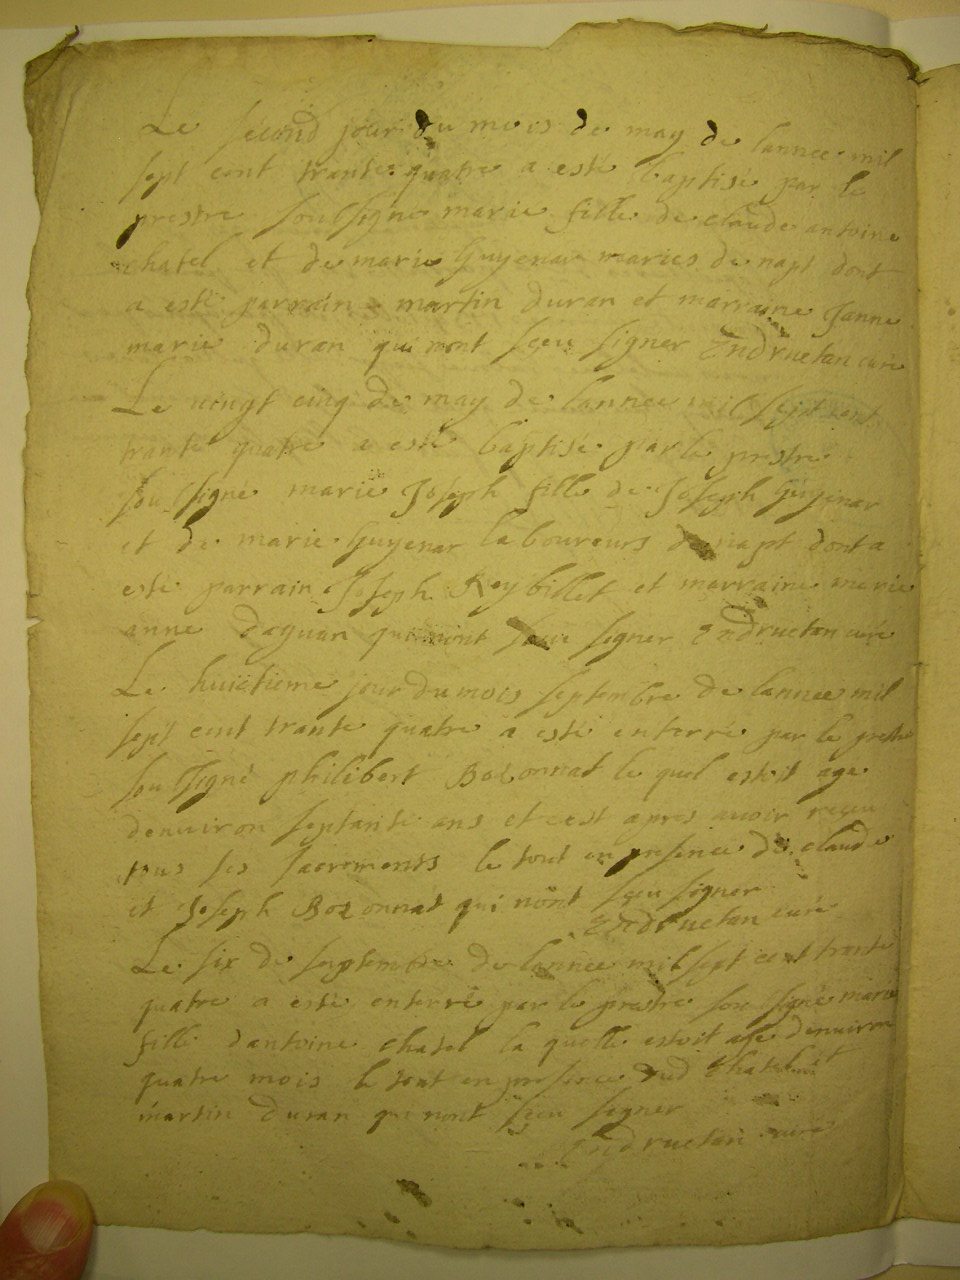 Le second jour du mois de may de lannee mil
sept cent trante quatre a esté baptisé par le
prestre soubsigné marie fille de claude antoine
chatel et de marie Guyenar mariés de napt dont
a esté parrain martin duran et marraine Janne
marie duran qui nont sçeu signer Endruetan curé
Le vingt cinq de may de lannee mil sept cent
trante quatre a esté baptisé par le prestre
soussigné marie Joseph fille de Joseph Guyenar
et de marie Guyenar laboureurs de napt dont a
esté parrain Joseph Reybillet et marraine marie
anne qui nont sçeu signer Endruetan curé
Le huictieme jour du mois septembre de lannee mil
sept cent trante quatre a esté enterré par le prestre
soussigné philibert Bozonnat le quel estoit age
denuiron septante ans et cest apres auoir reçeu
tous ses sacrements le tout en presence de claude
et Joseph Bozonnat qui nont sçeu signer
Endruetan curé
Le six de septembre de lannee mil sept cent trante
quatre a esté enterré par le prestre soussigné marie
fille dantoine chatel la quelle estoit age denuiron
quatre mois le tout en presence dud Chatel et
martin duran qui nont sçeu signer
Endruetan curé